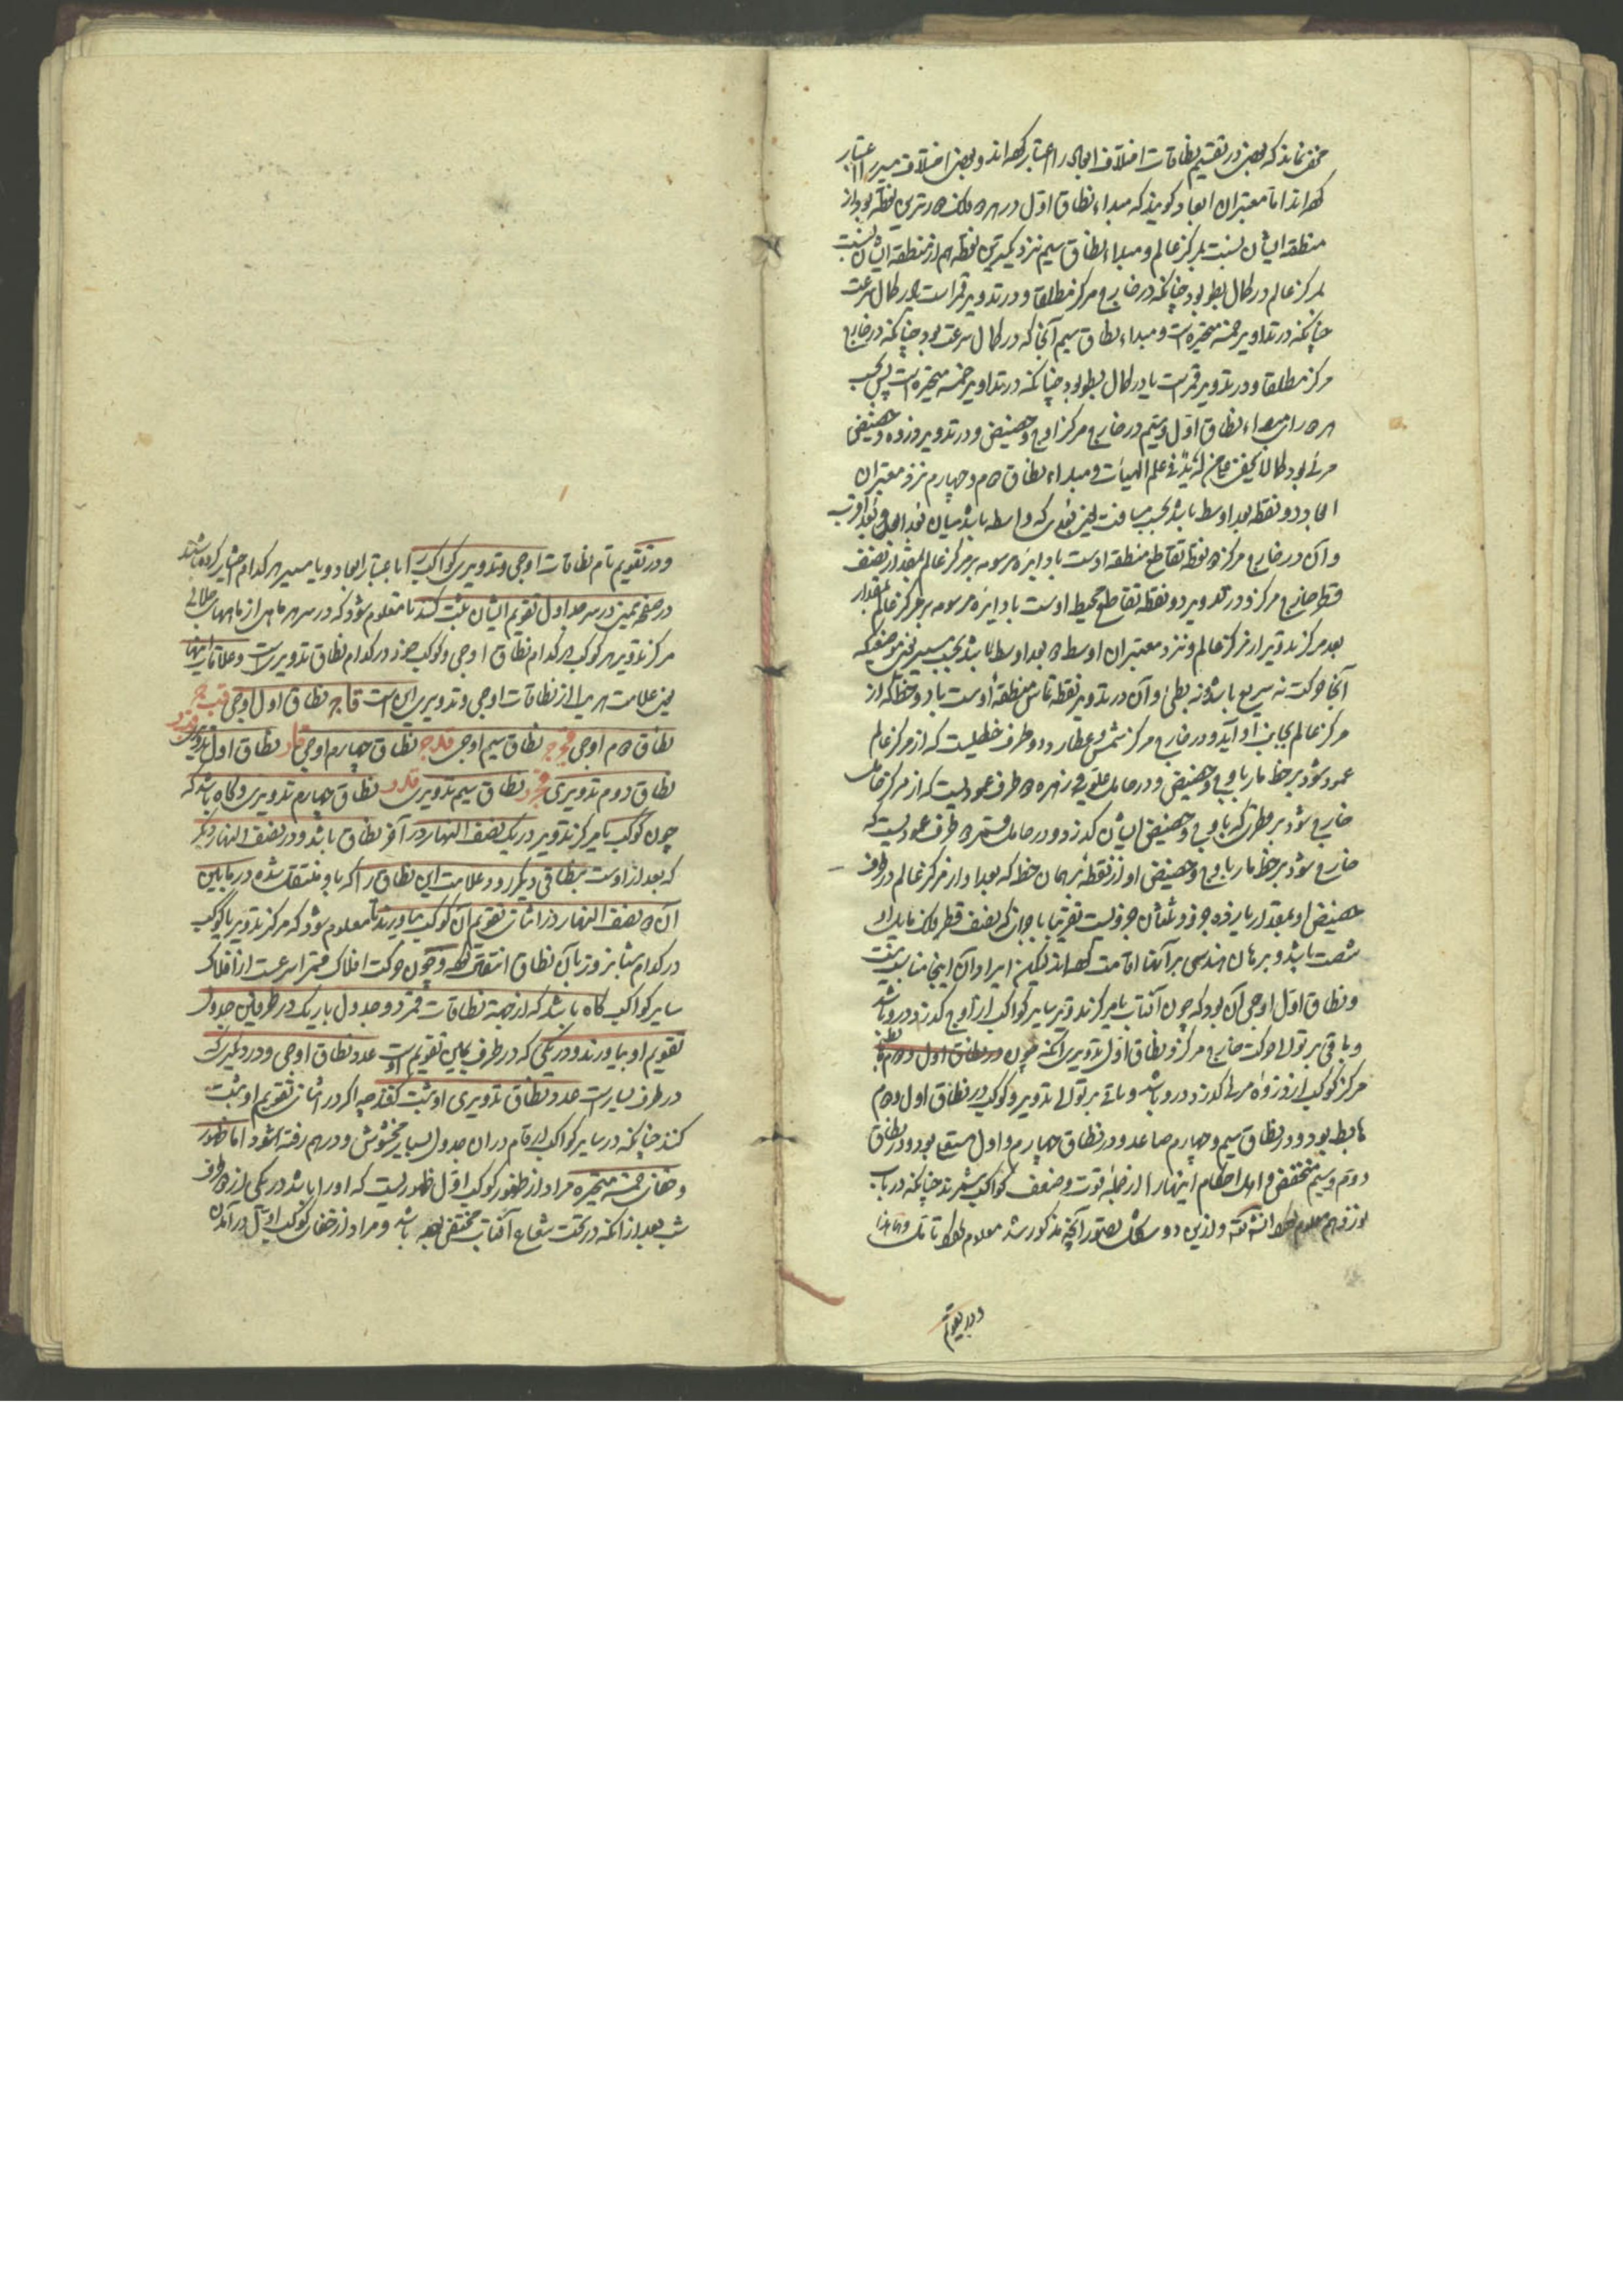 مخفی نماند که بعضی در تقسیم نطاقات اختلاف ابعاد را اعتبار کرده‌اند و بعضی اختلاف مسیر را اعتبار
کرده‌اند اما معتبران ابعاد گویند که مبداء نطاق اول در هر فلک دورترین نقطه بود از
منطقه ایشان نسبت بمرکز عالم و مبداء نطاق سیم نزدیکترین نقطه هم از منطقه ایشان نسبت
بمرکز عالم در کمال بطو بود چنانکه در خارج مرکز مطلقا و در تدویر قمر است یا در کمال سرعت
چنانکه در تداویر خمسه متحیره است و مبداء نطاق سیم آنجا که در کمال سرعت بود چنانکه در خارج
مرکز مطلقا و در تدویر قمر است یا در کمال بطو بود چنانکه در تداویر خمسه متحیره است پس بحسب
هر دو رای مبداء نطاق اول و سیم در خارج مرکز اوج و حضیض و در تدویر ذروه و حضیض
مرئی بود کما لا یخفی علی من له ید فی علم الهیات و مبداء نطاق دوم و چهارم نزد معتبران
ابعاد دو نقطه بعد اوسط باشد بحسب مسافت یعنی بعدی که واسطه باشد میان بعد ابعد و بعد اقرب
و آن در خارج مرکز دو نقطه تقاطع منطقه اوست با دایره مرسومه بر مرکز عالم بمقدار نصف
قطر خارج مرکز و در تدویر دو نقطه تقاطع محیط اوست با دایره مرسومه بر مرکز عالم بمقدار
بعد مرکز تدویر از مرکز عالم و نزد معتبران اوسط دو بعد اوسط باشد بحسب مسیر یعنی موضعی که
آنجا حرکت نه سریع باشد نه بطی و آن در تدویر نقطه تماس منطقه اوست با دو خط که از
مرکز عالم بجانب او آید و در خارج مرکز شمس و عطارد دو طرف خطیست که از مرکز عالم
عمود شود بر خط مار باوج و حضیض و در حامل علویه و زهره دو طرف عمودیست که از مرکز حامل
خارج شود بر قطری که باوج و حضیض ایشان گذرد و در حامل قمر دو طرف عمودیست که
خارج شود بر خط مار باوج و حضیض او از نقطه بر همان خط که بعد او از مرکز عالم در طرف
حضیض او بمقدار یازده جزو و ثلثان جزویست تقریبا باجزائی که نصف قطر فلک مایل او
شصت باشد و برهان هندسی بر آنها اقامت کرده‌اند لیکن ایراد آن اینجا مناسب نیست
و نطاق اول اوجی آن بود که چون آفتاب یا مرکز تدویر سایر کواکب از اوج گذرد در و باشد
و باقی بر توالی حرکت خارج مرکز و نطاق اول تدویری آنکه چون در نطاق اول دوم
مرکز کوکب از ذروه مرئی گذرد در و باشد و باقی بر توالی تدویر و کوکب در نطاق اول و دوم
هابط بود و در نطاق سیم و چهارم صاعد و در نطاق چهارم و اول مستعلی بود و در نطاق
دوم و سیم منخفض و اهل احکام اینها را از جمله قوت و ضعف کواکب شمرند چنانکه در باب
نوزدهم معلوم انشاءالله و ازین دو شکل بتصور آنچه مذکور شد معلوم
و در تقویم
و در تقویم تام نطاقات اوجی و تدویری کواکب را باعتبار ابعاد و یا مسیر هر کدام اختیار کرده باشند
در صفحه یمین در سر جداول تقویم ایشان ثبت کنند تا معلوم شود که در سر هر ماهی از ماههای جلالی
مرکز تدویر هر کوکب در کدام نطاق اوجی و کوکب خود در کدام نطاق تدویریست و علامات اینها
یعنی علامت هر یک از نطاقات اوجی و تدویری این است قاج نطاق اول اوجی قبج
نطاق دوم اوجی قجج نطاق سیم اوجی قدج نطاق چهارم اوجی قار نطاق اول تدویری
نطاق دوم تدویری قجر نطاق سیم تدویری قدر نطاق چهارم تدویری و گاه باشد که
چون کوکب یا مرکز تدویر در یک نصف النهار در آخر نطاق باشد و در نصف النهار دیگر
که بعد از اوست بنطاقی دیگر رود علامت این نطاق را که باو منتقل شده در مابین
آن دو نصف النهار در اثنای تقویم آن کوکب بیاورند تا معلوم شود که مرکز تدویر یا کوکب
در کدام شبانروز بآن نطاق انتقال کرده و چون حرکت افلاک قمر اسرعست از افلاک
سایر کواکب گاه باشد که از جهة نطاقات قمر دو جدول باریک در طرفین جدول
تقویم او بیاورند و در یکی که در طرف یمین تقویم اوست عدد نطاق اوجی و در دیگری که
در طرف یسار است عدد نطاق تدویری او ثبت کنند چه اگر در اثنای تقویم او ثبت
کنند چنانکه در سایر کواکب ارقام در آن جدول بسیار مخشوش و درهم رفته شود اما ظهور
و خفای خمسه متحیره مراد از ظهور کوکب اول ظهوریست که او را باشد در یکی از دو طرف
شب بعد از آنکه در تحت شعاع آفتاب مختفی بوده باشد و مراد از خفای کوکب اول در آمدن